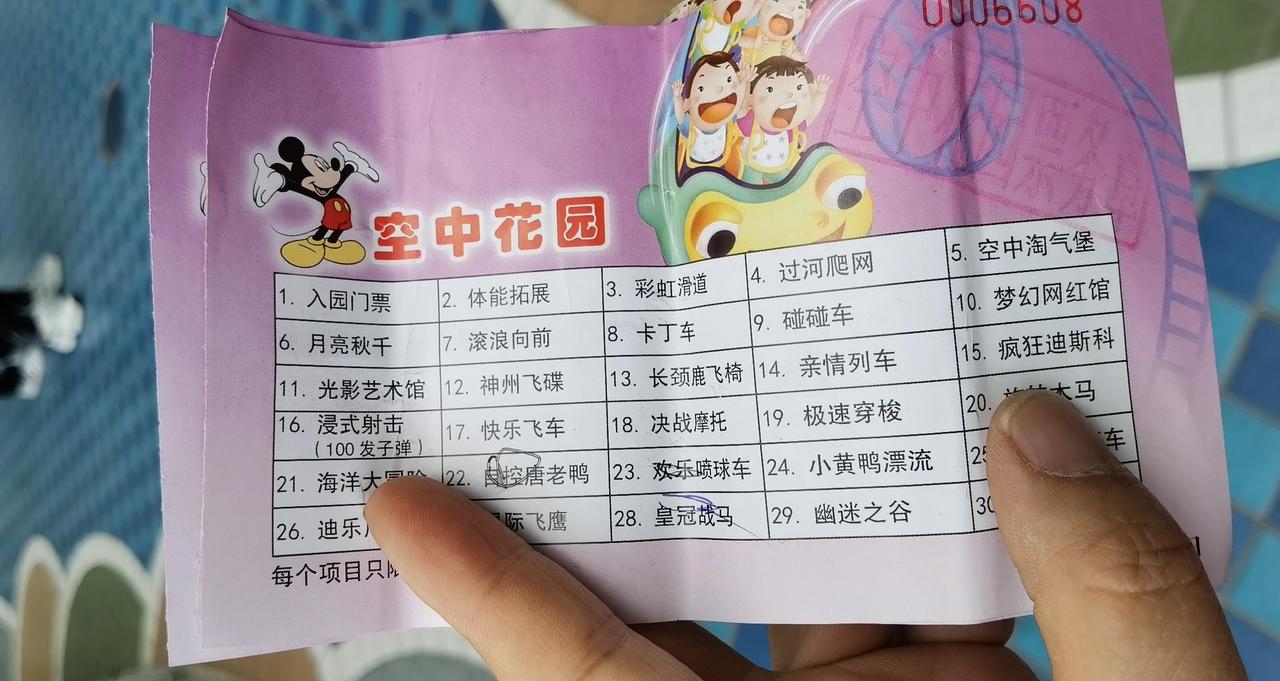 0006608
空中花园
1. 入园门票 2. 体能拓展 3. 彩虹滑道 4. 过河爬网 5. 空中淘气堡
6. 月亮秋千 7. 滚浪向前 8. 卡丁车 9. 碰碰车 10. 梦幻网红馆
11. 光影艺术馆 12. 神州飞碟 13. 长颈鹿飞椅 14. 亲情列车 15. 疯狂迪斯科
16. 浸式射击 17. 快乐飞车 18. 决战摩托 19. 极速穿梭 20. 木马
（100 发子弹）
21. 海洋大冒险 22. 控唐老鸭 23. 欢乐喷球车 24. 小黄鸭漂流 25 车
26. 迪乐 际飞鹰 28. 皇冠战马 29. 幽迷之谷 30
每个项目只限